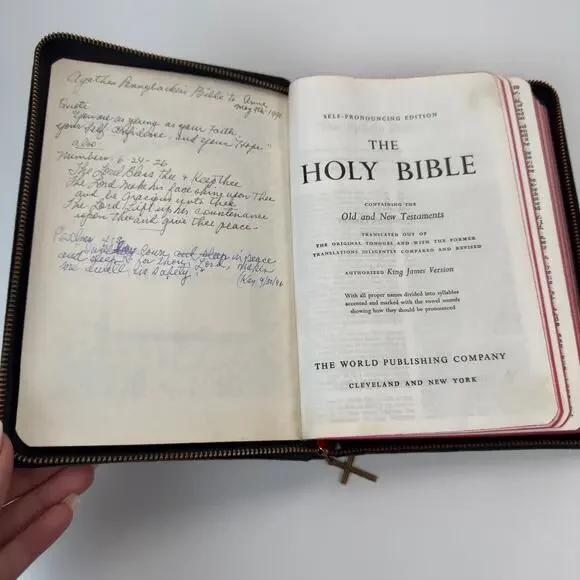 Agatha Pennybacker's Bible to Anna
May 9th, 19
Quote
"You are as young as your Faith,
your Self Confidence, and your "Hope"
also
Numbers 6-24-26
The Lord bless thee & Keep thee
The Lord make his face shine upon Thee
and be gracious unto thee
The Lord lift up his countenance
upon thee and give thee peace.
4:8
down and sleep in peace
Lord, makes
me dwell in safety"
SELF-PRONOUNCING EDITION
THE
HOLY BIBLE
CONTAINING THE
Old and New Testaments
TRANSLATED OUT OF
THE ORIGINAL TONGUES AND WITH THE FORMER
TRANSLATIONS DILIGENTLY COMPARED AND REVISED
AUTHORIZED King James Version
With all proper names divided into syllables
accented and marked with the vowel sounds
showing how they should be pronounced
THE WORLD PUBLISHING COMPANY
CLEVELAND AND NEW YORK